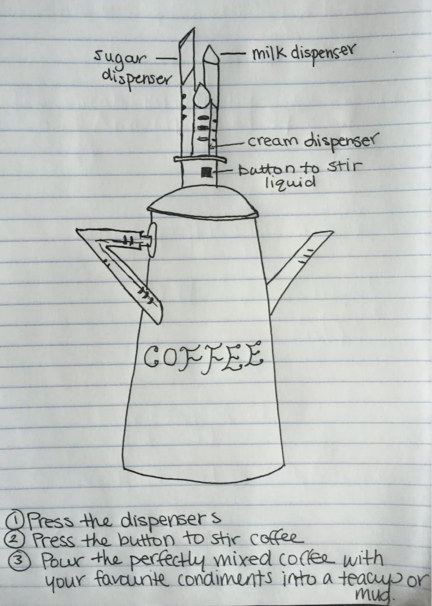 sugar dispenser
milk dispenser
cream dispenser
button to stir
liquid
COFFEE
① Press the dispensers
② Press the button to stir coffee
③ Pour the perfectly mixed coffee with
your favourite condiments into a teacup or
mud.